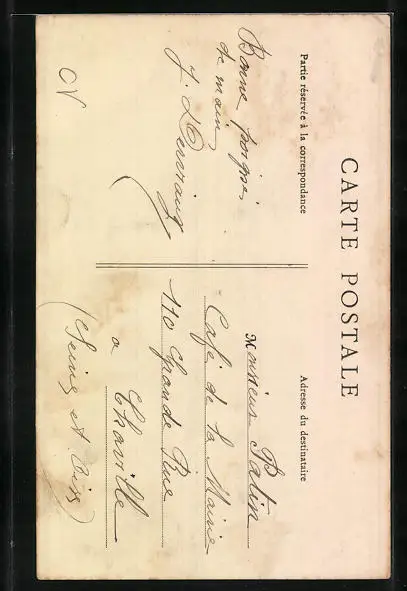 CARTE POSTALE
Partie réservée à la correspondance
Bonne poignée
de main
J.
CV
Adresse du destinataire
Monsieur Patin
Café de la Mairie
110 Grande Rue
à Chaville
(Seine et Oise)